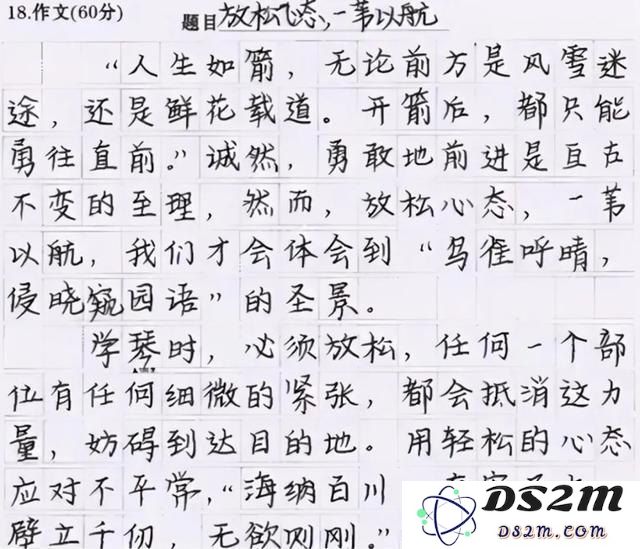 18.作文(60分)
题目 放松心态,一苇以航
“人生如箭，无论前方是风雪迷
途，还是鲜花载道。开箭后，都只能
勇往直前。”诚然，勇敢地前进是亘古
不变的至理，然而，放松心态，一苇
以航，我们才会体会到“乌雀呼晴，
侵晓窥园语”的圣景。
学琴时，必须放松，任何一个部
位有任何细微的紧张，都会抵消这力
量，妨碍到达目的地。用轻松的心态
应对不平常，“海纳百川
壁立千仞，无欲则刚。”
DS2m
DS2m.com